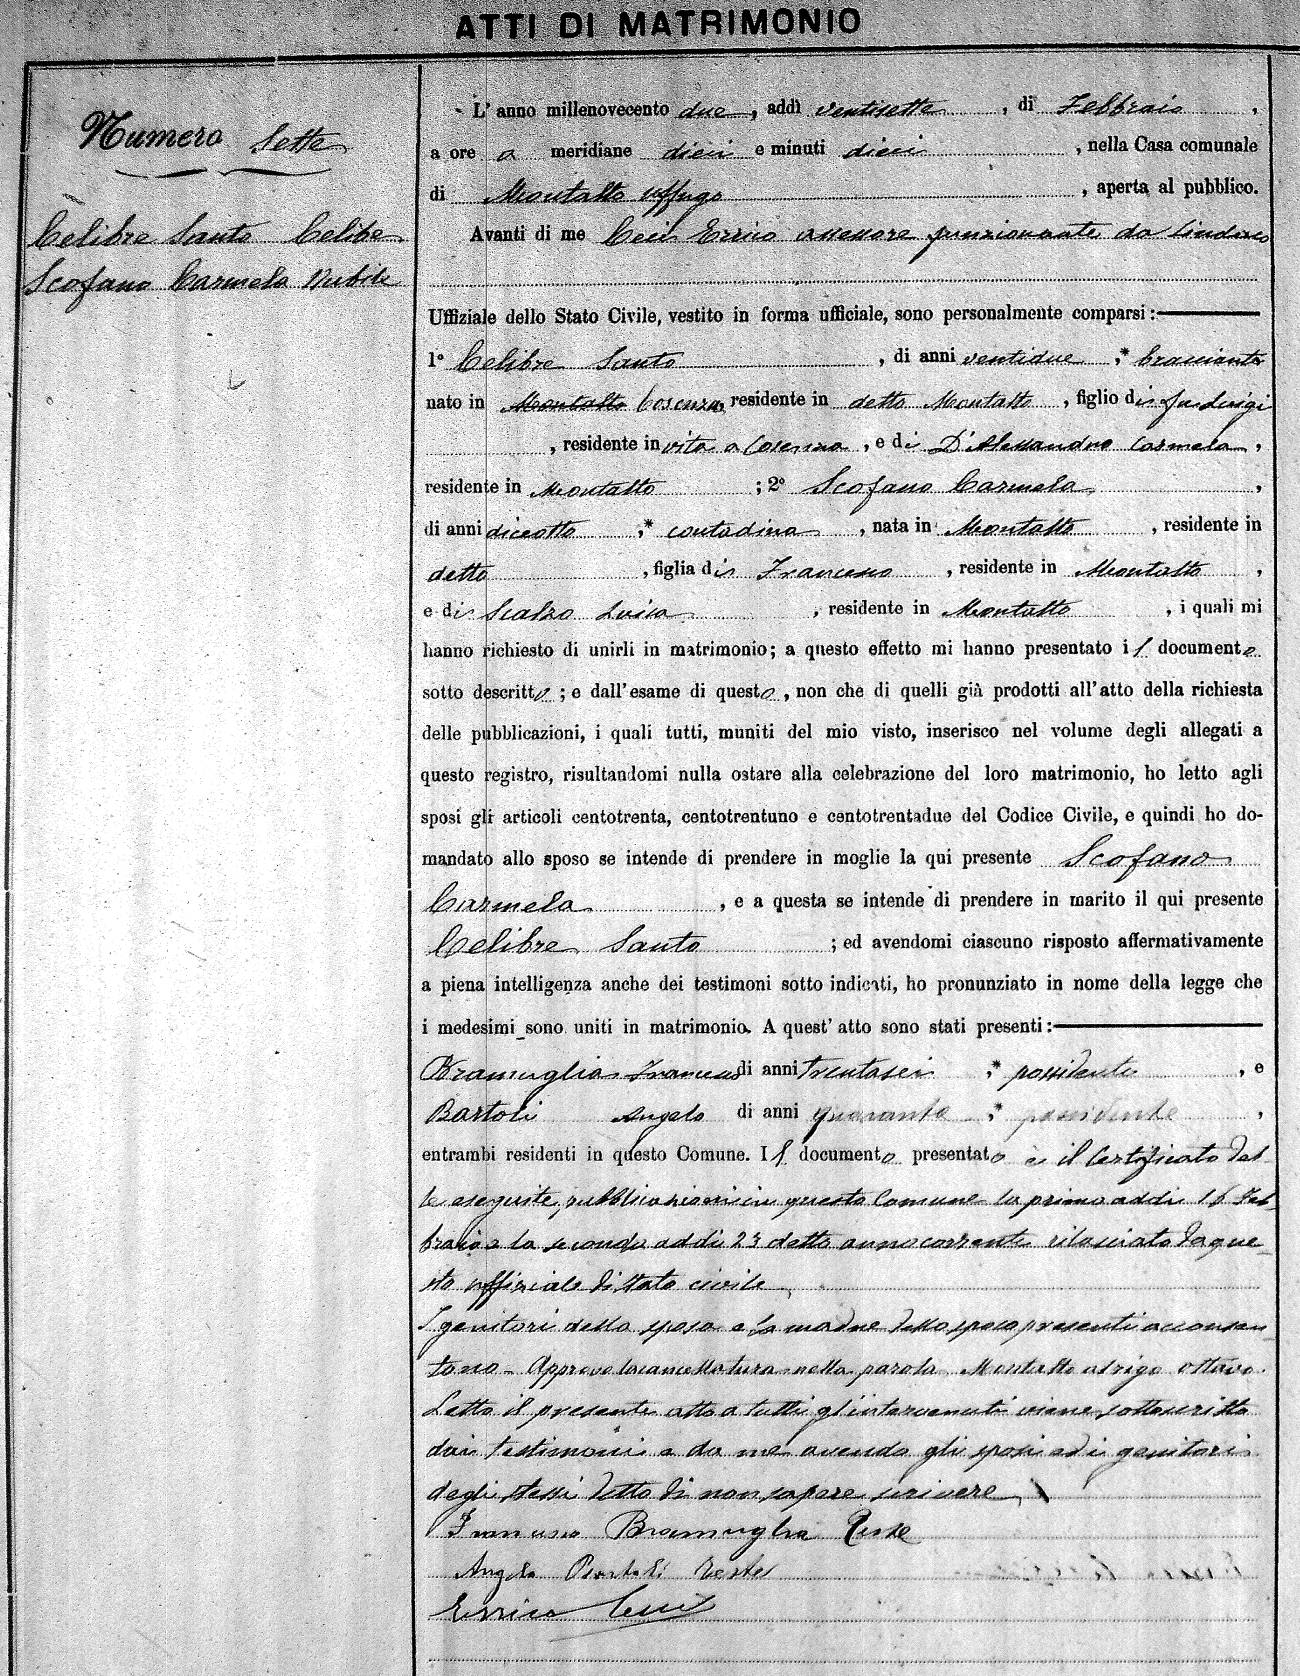 ATTI DI MATRIMONIO
Numero Sette
Celibre Santo Celibe
Scofano Carmela Nubile
L'anno millenovecento due, addì ventisette, di Febbraio,
a ore a meridiane dieci e minuti dieci, nella Casa comunale
di Montalto Uffugo, aperta al pubblico.
Avanti di me Ceci Errico assessore funzionante da Sindaco
Uffiziale dello Stato Civile, vestito in forma ufficiale, sono personalmente comparsi:
1° Celibre Santo, di anni ventidue, * bracciante
nato in Montalto Cosenza, residente in detto Montalto, figlio di fu Luigi
, residente in vita a Cosenza, e di D'Alessandro Carmela,
residente in Montalto; 2° Scofano Carmela,
di anni diceotto, * contadina, nata in Montalto, residente in
detto, figlia di Francesco, residente in Montalto,
e di Scalzo Luisa, residente in Montalto, i quali mi
hanno richiesto di unirli in matrimonio; a questo effetto mi hanno presentato il documento
sotto descritto; e dall'esame di questo, non che di quelli già prodotti all'atto della richiesta
delle pubblicazioni, i quali tutti, muniti del mio visto, inserisco nel volume degli allegati a
questo registro, risultandomi nulla ostare alla celebrazione del loro matrimonio, ho letto agli
sposi gli articoli centotrenta, centotrentuno e centotrentadue del Codice Civile, e quindi ho do-
mandato allo sposo se intende di prendere in moglie la qui presente Scofano
Carmela, e a questa se intende di prendere in marito il qui presente
Celibre Santo; ed avendomi ciascuno risposto affermativamente
a piena intelligenza anche dei testimoni sotto indicati, ho pronunziato in nome della legge che
i medesimi sono uniti in matrimonio. A quest'atto sono stati presenti:
Bramuglia Francesco di anni trentasei, * possidente, e
Bartoli Angelo di anni quaranta, * possidente,
entrambi residenti in questo Comune. Il documento presentato è il certificato del
le eseguite pubblicazioni in questo Comune la prima addì 16 Feb
braio e la seconda addì 23 detto anno corrente rilasciato da que
sto uffiziale di stato civile
I genitori della sposa e la madre dello sposo presenti acconsen
tono - Approvo la cancellatura nella parola Montalto al rigo ottavo.
Letto il presente atto a tutti gl'intervenuti viene sottoscritto
dai testimoni e da me avendo gli sposi ed i genitori
degli stessi detto di non sapere scrivere
Francesco Bramuglia Teste
Angelo Bartoli Teste
Errico Ceci